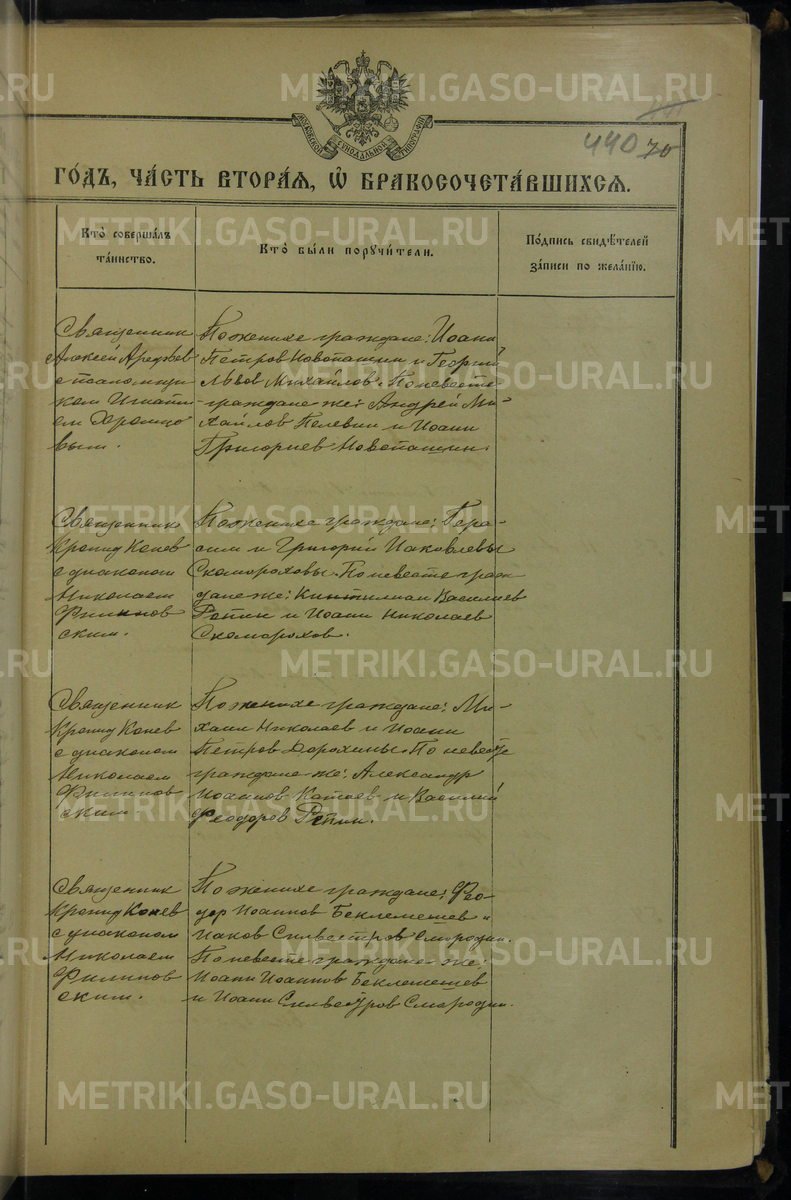 МОСКОВСКОЙ СѴНОДАЛЬНОЙ ТИПОГРАФІИ
440 70
ГО́ДЪ, ЧА́СТЬ ВТОРА́Я, Ѡ҆ БРАКОСОЧЕТА́ВШИХСЯ.
Кто̀ соверша́лъ та́инство.
Кто̀ бы́ли поручи́тели.
По́дпись свидѣ́телей за́писи по жела́нїю.
Священник
Алексей Арефьев
с псаломщи
ком Игнати
ем Хромцо
вым.
По женихе граждане: Иоанн
Петров Новопашин и Георгий
Львов Михайлов. По невесте
граждане же: Андрей Ми-
хайлов Пелевин и Иоанн
Григориев Новопашин.
Священник
Кронид Конев
с диаконом
Николаем
Филипов
ским.
По женихе граждане: Гера-
сим и Григорий Иаковлевы
Скомороховы. По невесте граж
дане же: Кинтилиан Василиев
Репин и Иоанн Николаев
Скоморохов.
Священник
Кронид Конев
с диаконом
Николаем
Филипов
ским.
По женихе граждане: Ми-
хаил Николаев и Иоанн
Петров Дорохины. По невесте
граждане же: Александр
Иоаннов Катаев и Василий
Феодоров Репин.
Священник
Кронид Конев
с диаконом
Николаем
Филипов
ским.
По женихе граждане: Фео-
дор Иоаннов Беклемешев и
Иаков Силвестров Смородин.
По невесте граждане же:
Иоанн Иоаннов Беклемешев
и Иоанн Силвестров Смародин.
METRIKI.GASO-URAL.RU